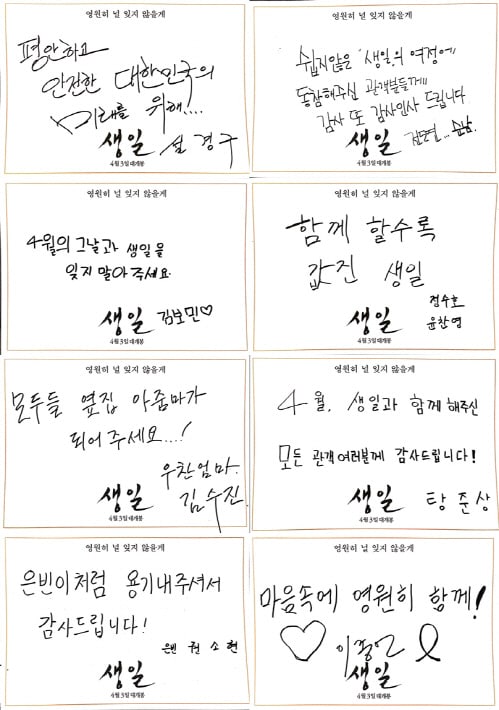 영원히 널 잊지 않을게
평안하고
안전한 대한민국의
미래를 위해!...
생일 설경구
4월 3일 대개봉
영원히 널 잊지 않을게
쉽지않은 '생일의 여정'에
동참해주신 관객분들께
감사 또 감사인사 드립니다
생일 전도연... 순남
4월 3일 대개봉
영원히 널 잊지 않을게
4월의 그날과 생일을
잊지 말아주세요.
생일 김보민♡
4월 3일 대개봉
영원히 널 잊지 않을게
함께 할수록
값진 생일
정수호
생일 윤찬영
4월 3일 대개봉
영원히 널 잊지 않을게
모두들 옆집 아줌마가
되어주세요...!
우찬엄마.
생일 김수진
4월 3일 대개봉
영원히 널 잊지 않을게
4월, 생일과 함께 해주신
모든 관객여러분께 감사드립니다!
생일 탕준상
4월 3일 대개봉
영원히 널 잊지 않을게
은빈이처럼 용기내주셔서
감사드립니다!
은빈 권소현
생일
4월 3일 대개봉
영원히 널 잊지 않을게
마음속에 영원히 함께!
이종언
생일
4월 3일 대개봉